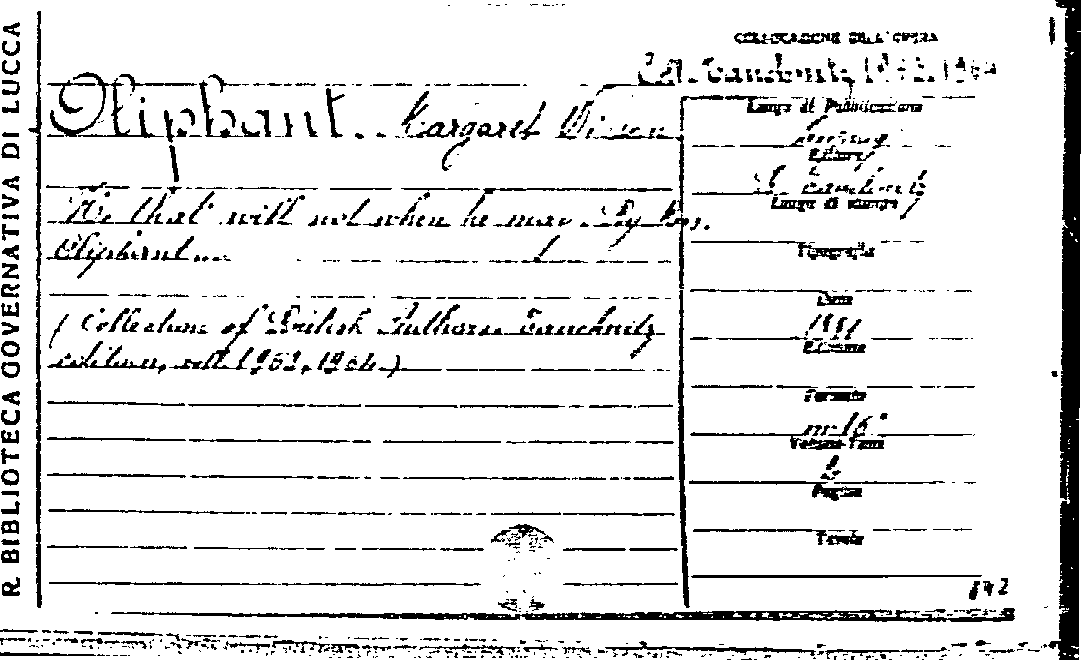 R BIBLIOTECA GOVERNATIVA DI LUCCA
COLLOCAZIONE DELL'OPERA
Coll. Tauchnitz 1963.1964
Oliphant. Margaret
He that will not when he may. By Mrs.
Oliphant...
(Collection of British Authors Tauchnitz
edition, voll. 1963, 1964.)
Luogo di Pubblicazione
Leipzig
Editore
B. Tauchnitz
Luogo di stampa
Tipografia
Data
1881
Edizione
Formato
in-16°
Volume-Tomo
2
Pagine
Tavole
142